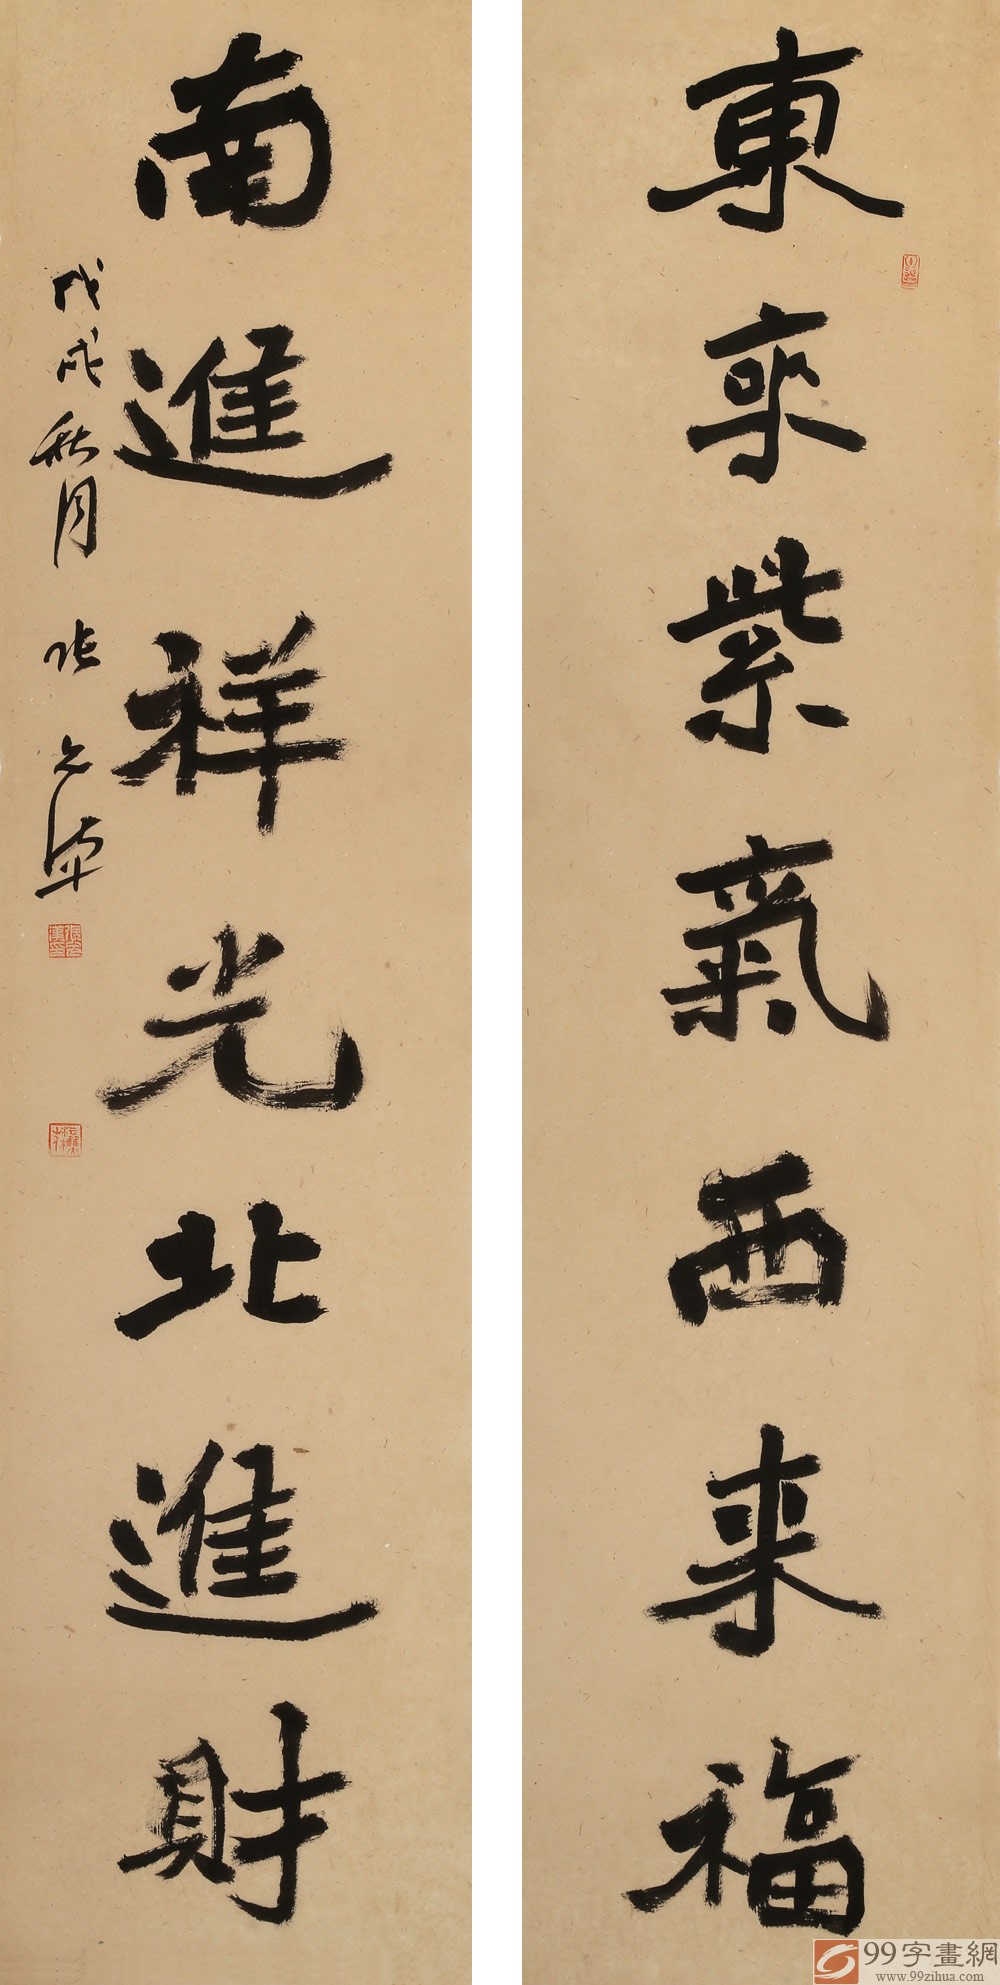 東来紫氣西来福
南進祥光北進財
戊戌秋月
99字畫網
www.99zihua.com